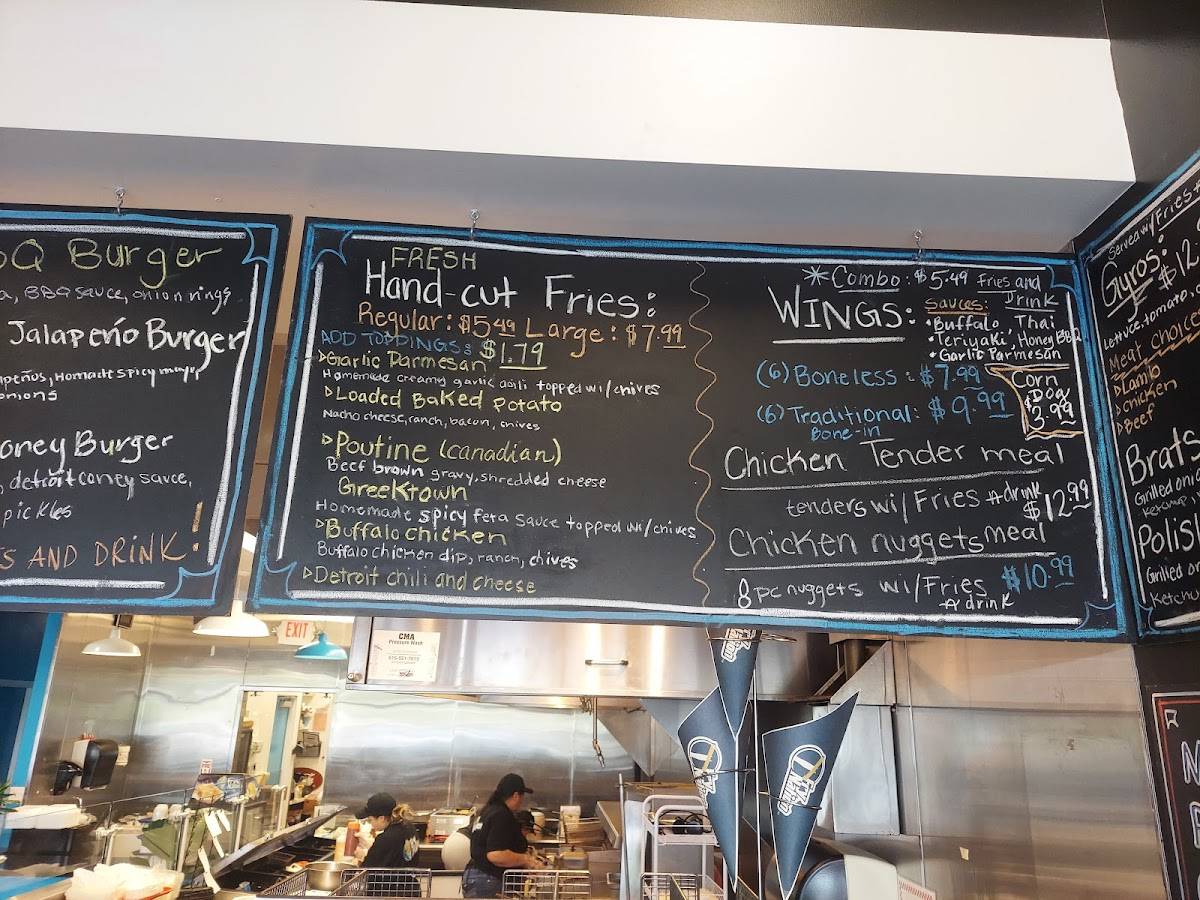 Q Burger
BBQ sauce, onion rings
Jalapeño Burger
Homade spicy mayo,
onions
oney Burger
detroit coney sauce,
pickles
S AND DRINK!
FRESH
Hand-cut Fries:
Regular: $5.49 Large: $7.99
ADD TOPPINGS: $1.79
Garlic Parmesan
Homemade creamy garlic aoili topped w/chives
Loaded Baked Potato
Nacho cheese, ranch, bacon, chives
Poutine (canadian)
Beef brown gravy, shredded cheese
Greektown
Homemade spicy feta sauce topped w/chives
Buffalo chicken
Buffalo chicken dip, ranch, chives
Detroit chili and cheese
*Combo: $5.49 Fries and Drink
WINGS:
Sauces:
• Buffalo, Thai
• Teriyaki, Honey BBQ
• Garlic Parmesan
(6) Boneless: $7.99
(6) Traditional: $9.99
Bone-in
Corn
Dog
$3.99
Chicken Tender meal
tenders w/Fries & drink $12.99
Chicken nuggets meal
8 pc nuggets w/Fries $10.99
& drink
Served w/ Fries
Gyros:
$12
Lettuce, tomato,
Meat choice
Lamb
Chicken
Beef
Brats
Grilled oni
Ketchup
Polis
Grilled on
Ketchu
EXIT
CMA
Pressure Wash